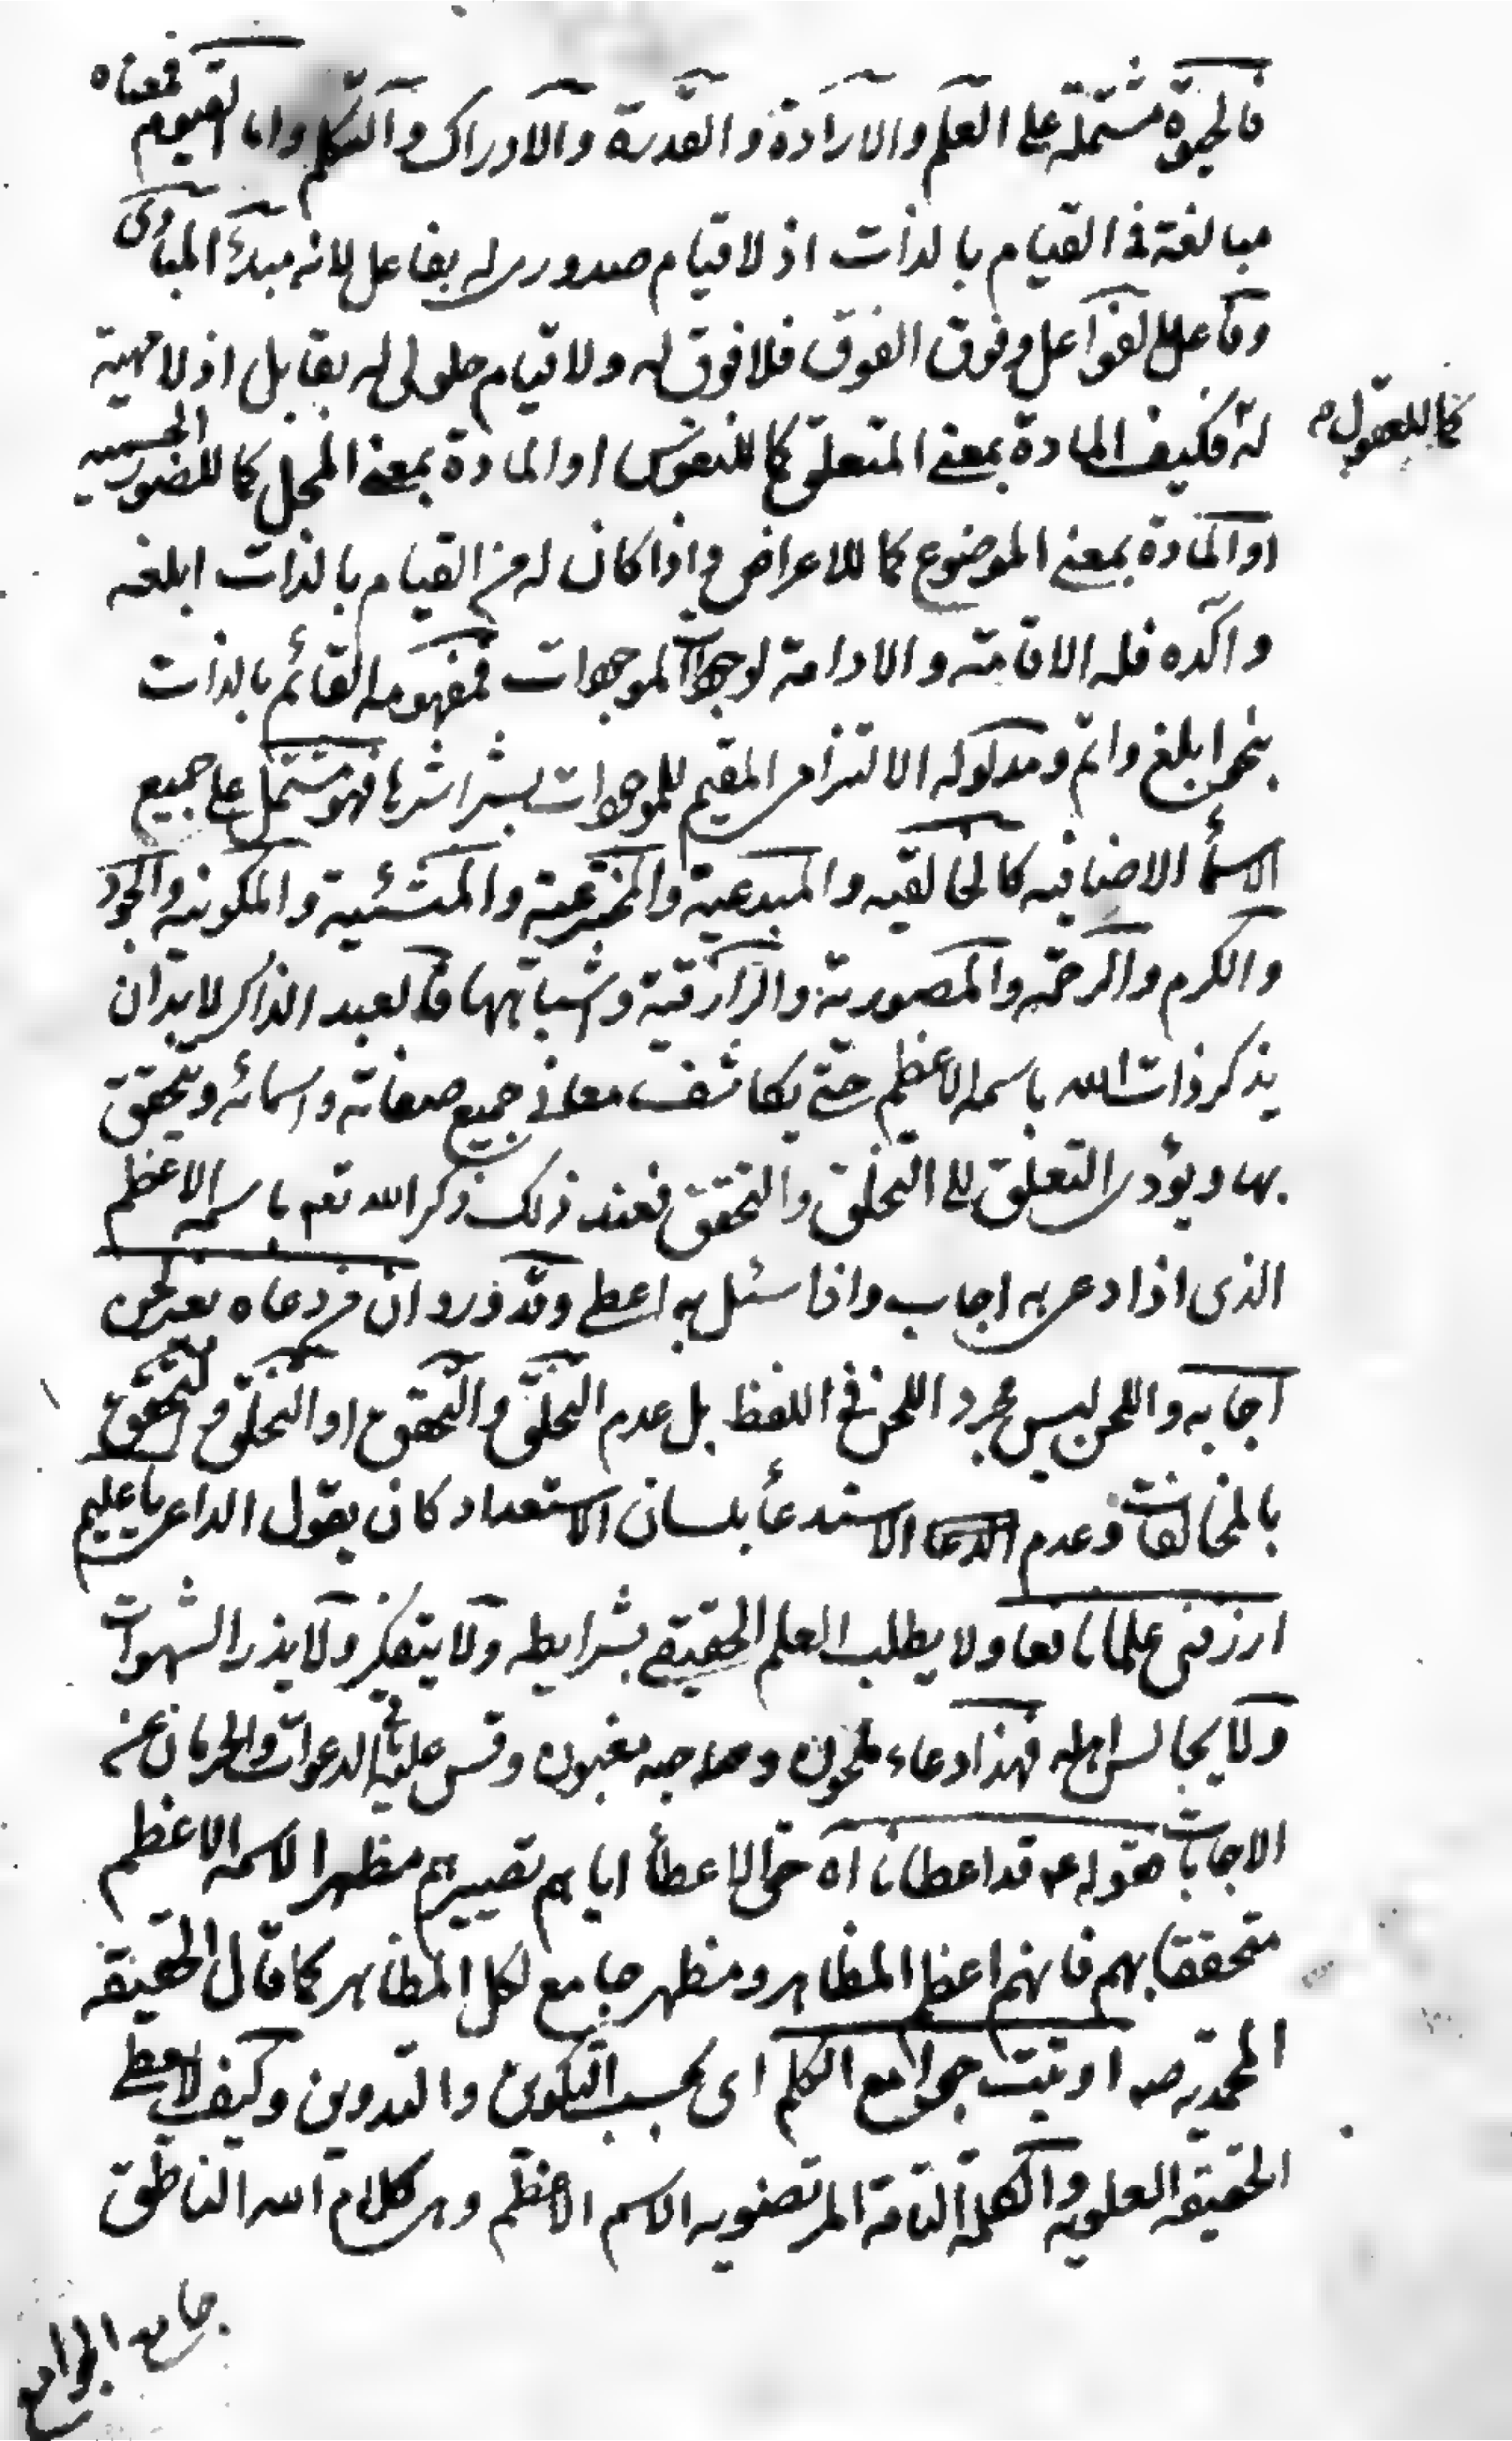 فالحيوة مشتملة على العلم والارادة والقدرة والادراك والتكلم واما القيوم فمعناه
مبالغة فى القيام بالذات اذ لا قيام صدورى له بفاعل لانه مبدء المبادى
وفاعل الفواعل وفوق الفوق فلا فوق له ولا قيام حلولى له بقابل اذ لا مهية
له فكيف المادة بمعنى المتعلق كما للنفوس او المادة بمعنى المحل كما للصور الجسمية
كما للعقول م
او المادة بمعنى الموضوع كما للاعراض واذا كان له من القيام بالذات ابلغه
واكده فله الاقامة والادامة لوجودات الموجودات فمفهومه القائم بالذات
بنحو ابلغ واتم ومدلوله الالتزامى المقيم للموجودات بشراشرها فهو مشتمل على جميع
الاسمأ الاضافيه كالخالقيه والمبدعية والمخترعية والمنشئية والمكونيه والجود
والكرم والرحمة والمصورية والرازقية وشباتهها فالعبد الذاكر لا بد ان
يذكر ذات الله باسمه الاعظم حتى يكاشف معانى جميع صفاته واسمائه ويتحقق
بها ويؤدى التعلق الى التخلق والتحقق فعند ذلك ذكر الله تعم باسمه الاعظم
الذى اذا دعى به اجاب واذا سئل به اعطى وقد ورد ان من دعاه بغير لحن
اجابه واللحن ليس مجرد اللحن فى اللفظ بل عدم التخلق والتحقق او التخلق والتحقق
بالمخالفات وعدم الاستدعأ بلسان الاستعداد كان يقول الداعى يا عليم
ارزقنى علما نافعا ولا يطلب العلم الحقيقى بشرايطه ولا يتفكر ولا يذر الشهوات
ولا يجالس اهله فهذا دعاء ملحون وصاحبه مغبون وقس عليه باقى الدعوات والحرمان عن
الاجابات فقوله عه قد اعطانا اه حق الاعطأ اياهم تصييرهم مظهرا لاسمه الاعظم
متحققا بهم فانهم اعظم المظاهر ومظهر جامع لكل المظاهر كما قال الحقيقة
المحمديه صه اوتيت جوامع الكلم اى بحسب التكوين والتدوين وكيف لا يعطى
الحقيقه العلويه والكلمة التامة المرتضويه الاسم الاعظم وهى كلام الله الناطق
جامع الجوامع